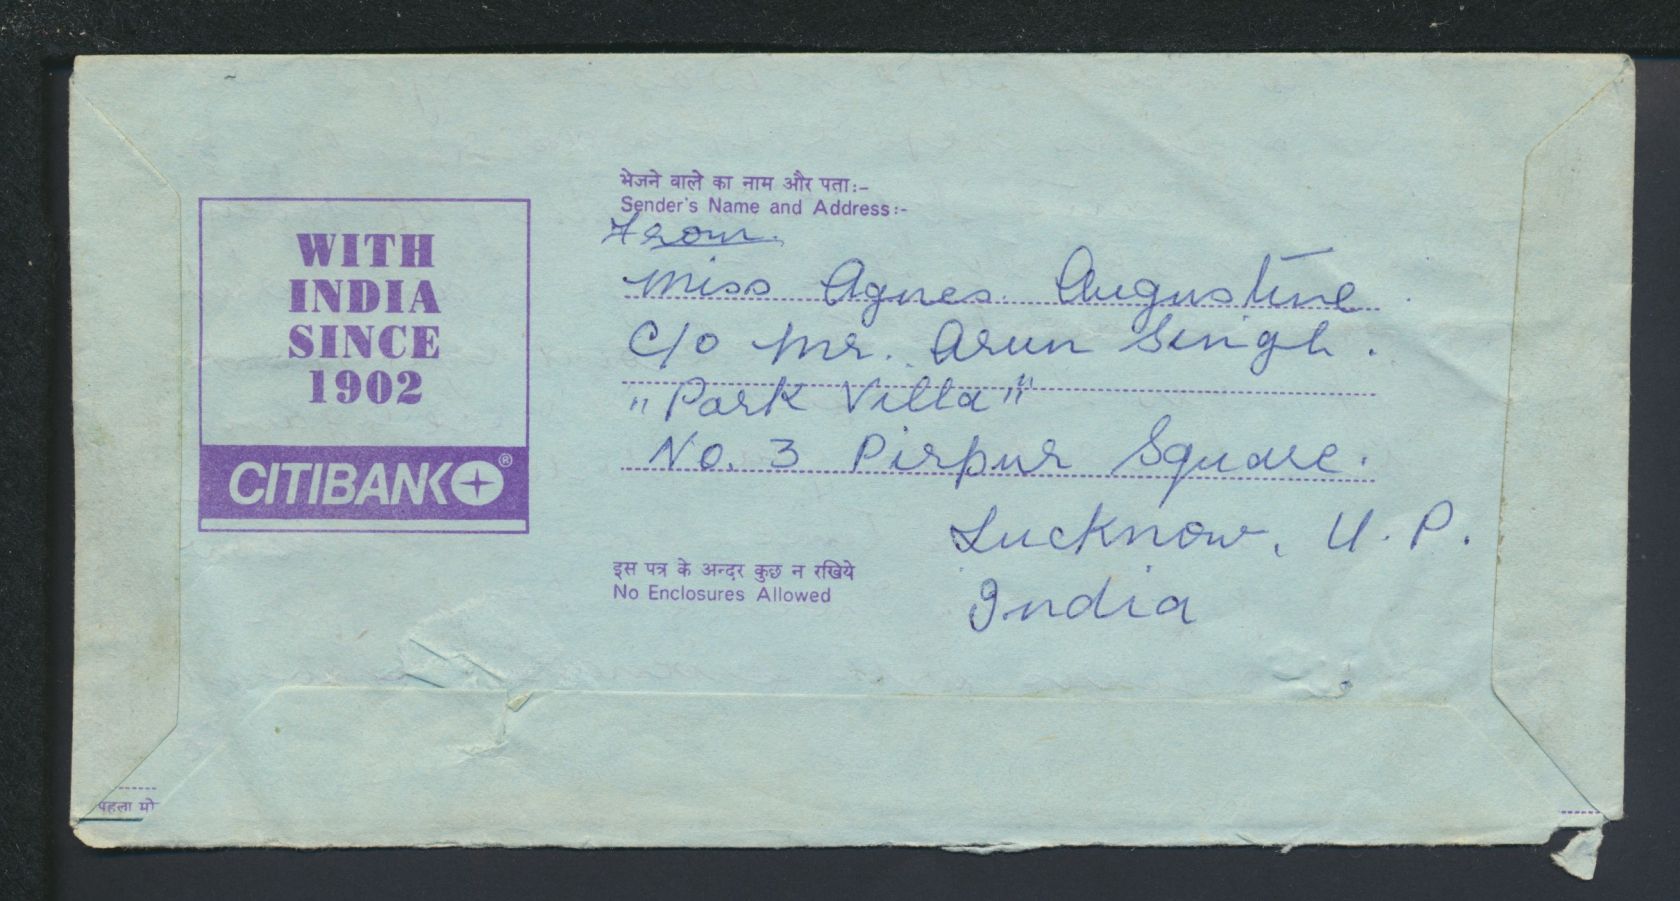 भेजने वाले का नाम और पता:-
Sender's Name and Address:-
From.
Miss Agnes Augustine
C/o Mr. Arun Singh.
"Park Villa"
No. 3 Pirpur Square.
Lucknow, U.P.
India
WITH
INDIA
SINCE
1902
CITIBANK®
इस पत्र के अन्दर कुछ न रखिये
No Enclosures Allowed
पहला मो